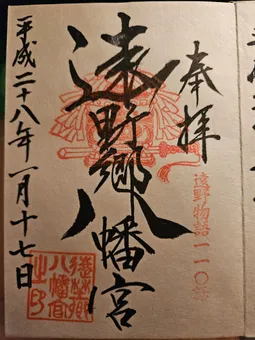 奉拝
遠野物語一一〇話
遠野郷八幡宮
遠野郷
八幡宮
之印
平成二十八年一月十七日